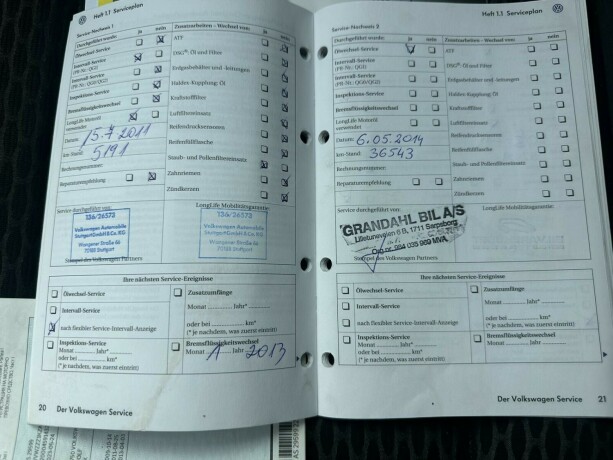 Heft 1.1 Serviceplan
Service-Nachweis 1
Durchgeführt wurde: ja nein
Ölwechsel-Service
Intervall-Service
(PR-Nr.: QG1)
Intervall-Service
Inspektions-Service
Bremsflüssigkeitswechsel
LongLife Motoröl
verwendet
Datum: 15.7 2011
km-Stand: 5191
Rechnungsnummer:
Reparaturempfehlung
Zusatzarbeiten - Wechsel von: ja nein
ATF
DSG®: Öl und Filter
Erdgasbehälter und -leitungen
Haldex-Kupplung: Öl
Kraftstofffilter
Luftfiltereinsatz
Reifendruckssensoren
Reifenfüllflasche
Staub- und Pollenfiltereinsatz
Zahnriemen
Zündkerzen
Service durchgeführt von:
LongLife Mobilitätsgarantie:
136/26573
Volkswagen Automobile
Stuttgart GmbH & Co. KG
Wangener Straße 66
70188 Stuttgart
136/26573
Volkswagen Automobile
Stuttgart GmbH & Co. KG
Wangener Straße 66
70188 Stuttgart
Stempel des Volkswagen Partners
Ihre nächsten Service-Ereignisse
Ölwechsel-Service
Intervall-Service
nach flexibler Service-Intervall-Anzeige
Inspektions-Service
Monat Jahr*
oder bei km*
(* je nachdem, was zuerst eintritt)
Zusatzumfänge
Monat Jahr*
oder bei km*
(* je nachdem, was zuerst eintritt)
Bremsflüssigkeitswechsel
Monat 1 Jahr 2013
20 Der Volkswagen Service
Heft 1.1 Serviceplan
Service-Nachweis 2
Durchgeführt wurde: ja nein
Ölwechsel-Service
Intervall-Service
(PR-Nr.: QG1)
Intervall-Service
Inspektions-Service
Bremsflüssigkeitswechsel
LongLife Motoröl
verwendet
Datum: 6.05.2014
km-Stand: 36543
Rechnungsnummer:
Reparaturempfehlung
Zusatzarbeiten - Wechsel von: ja nein
ATF
DSG®: Öl und Filter
Erdgasbehälter und -leitungen
Haldex-Kupplung: Öl
Kraftstofffilter
Luftfiltereinsatz
Reifendruckssensoren
Reifenfüllflasche
Staub- und Pollenfiltereinsatz
Zahnriemen
Zündkerzen
Service durchgeführt von:
LongLife Mobilitätsgarantie:
GRANDAHL BIL A/S
Lilletuneveien 6 B, 1711 Sarpsborg
Org nr. 984 035 969 MVA.
Stempel des Volkswagen Partners
Ihre nächsten Service-Ereignisse
Ölwechsel-Service
Intervall-Service
nach flexibler Service-Intervall-Anzeige
Inspektions-Service
Monat Jahr*
oder bei km*
(* je nachdem, was zuerst eintritt)
Zusatzumfänge
Monat Jahr*
oder bei km*
(* je nachdem, was zuerst eintritt)
Bremsflüssigkeitswechsel
Monat Jahr
Der Volkswagen Service 21